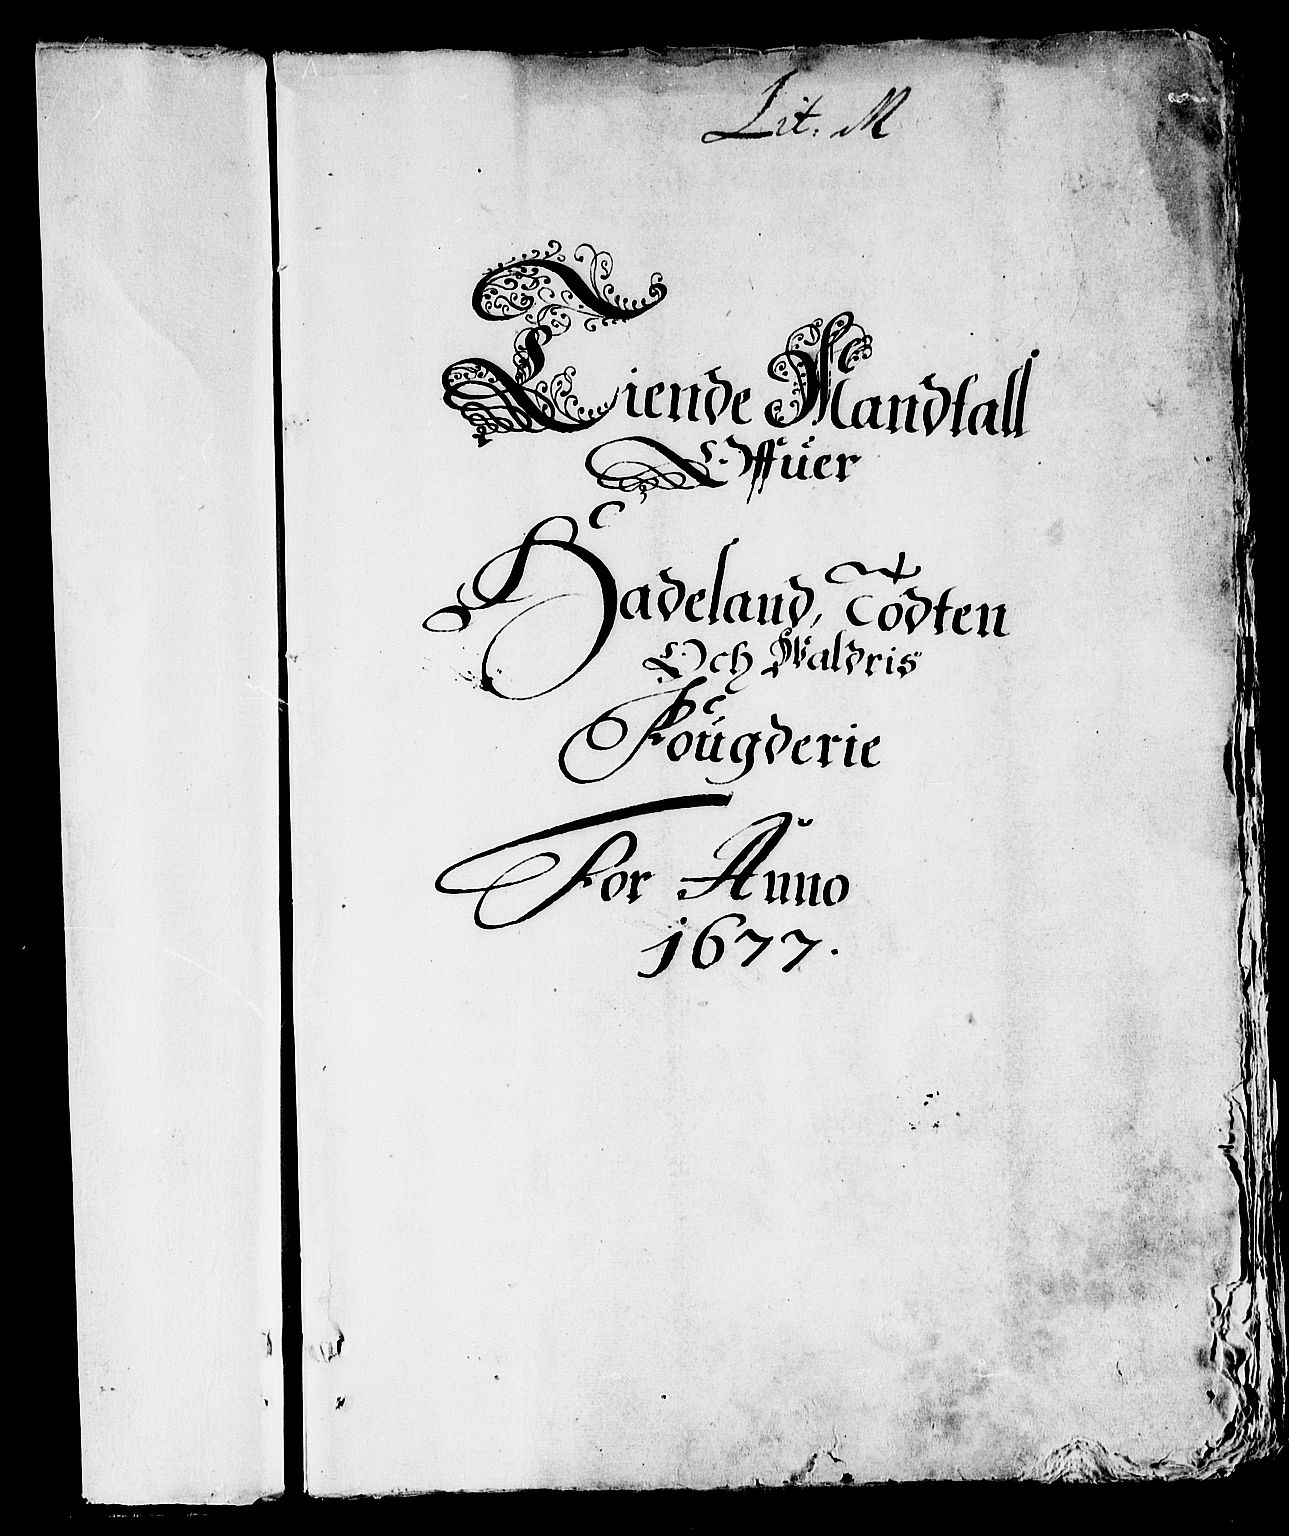 Lit. M
Tiende Mandtall
Offuer
Hadeland, Todten
Och Waldris
Fougderie
For Anno
1677.